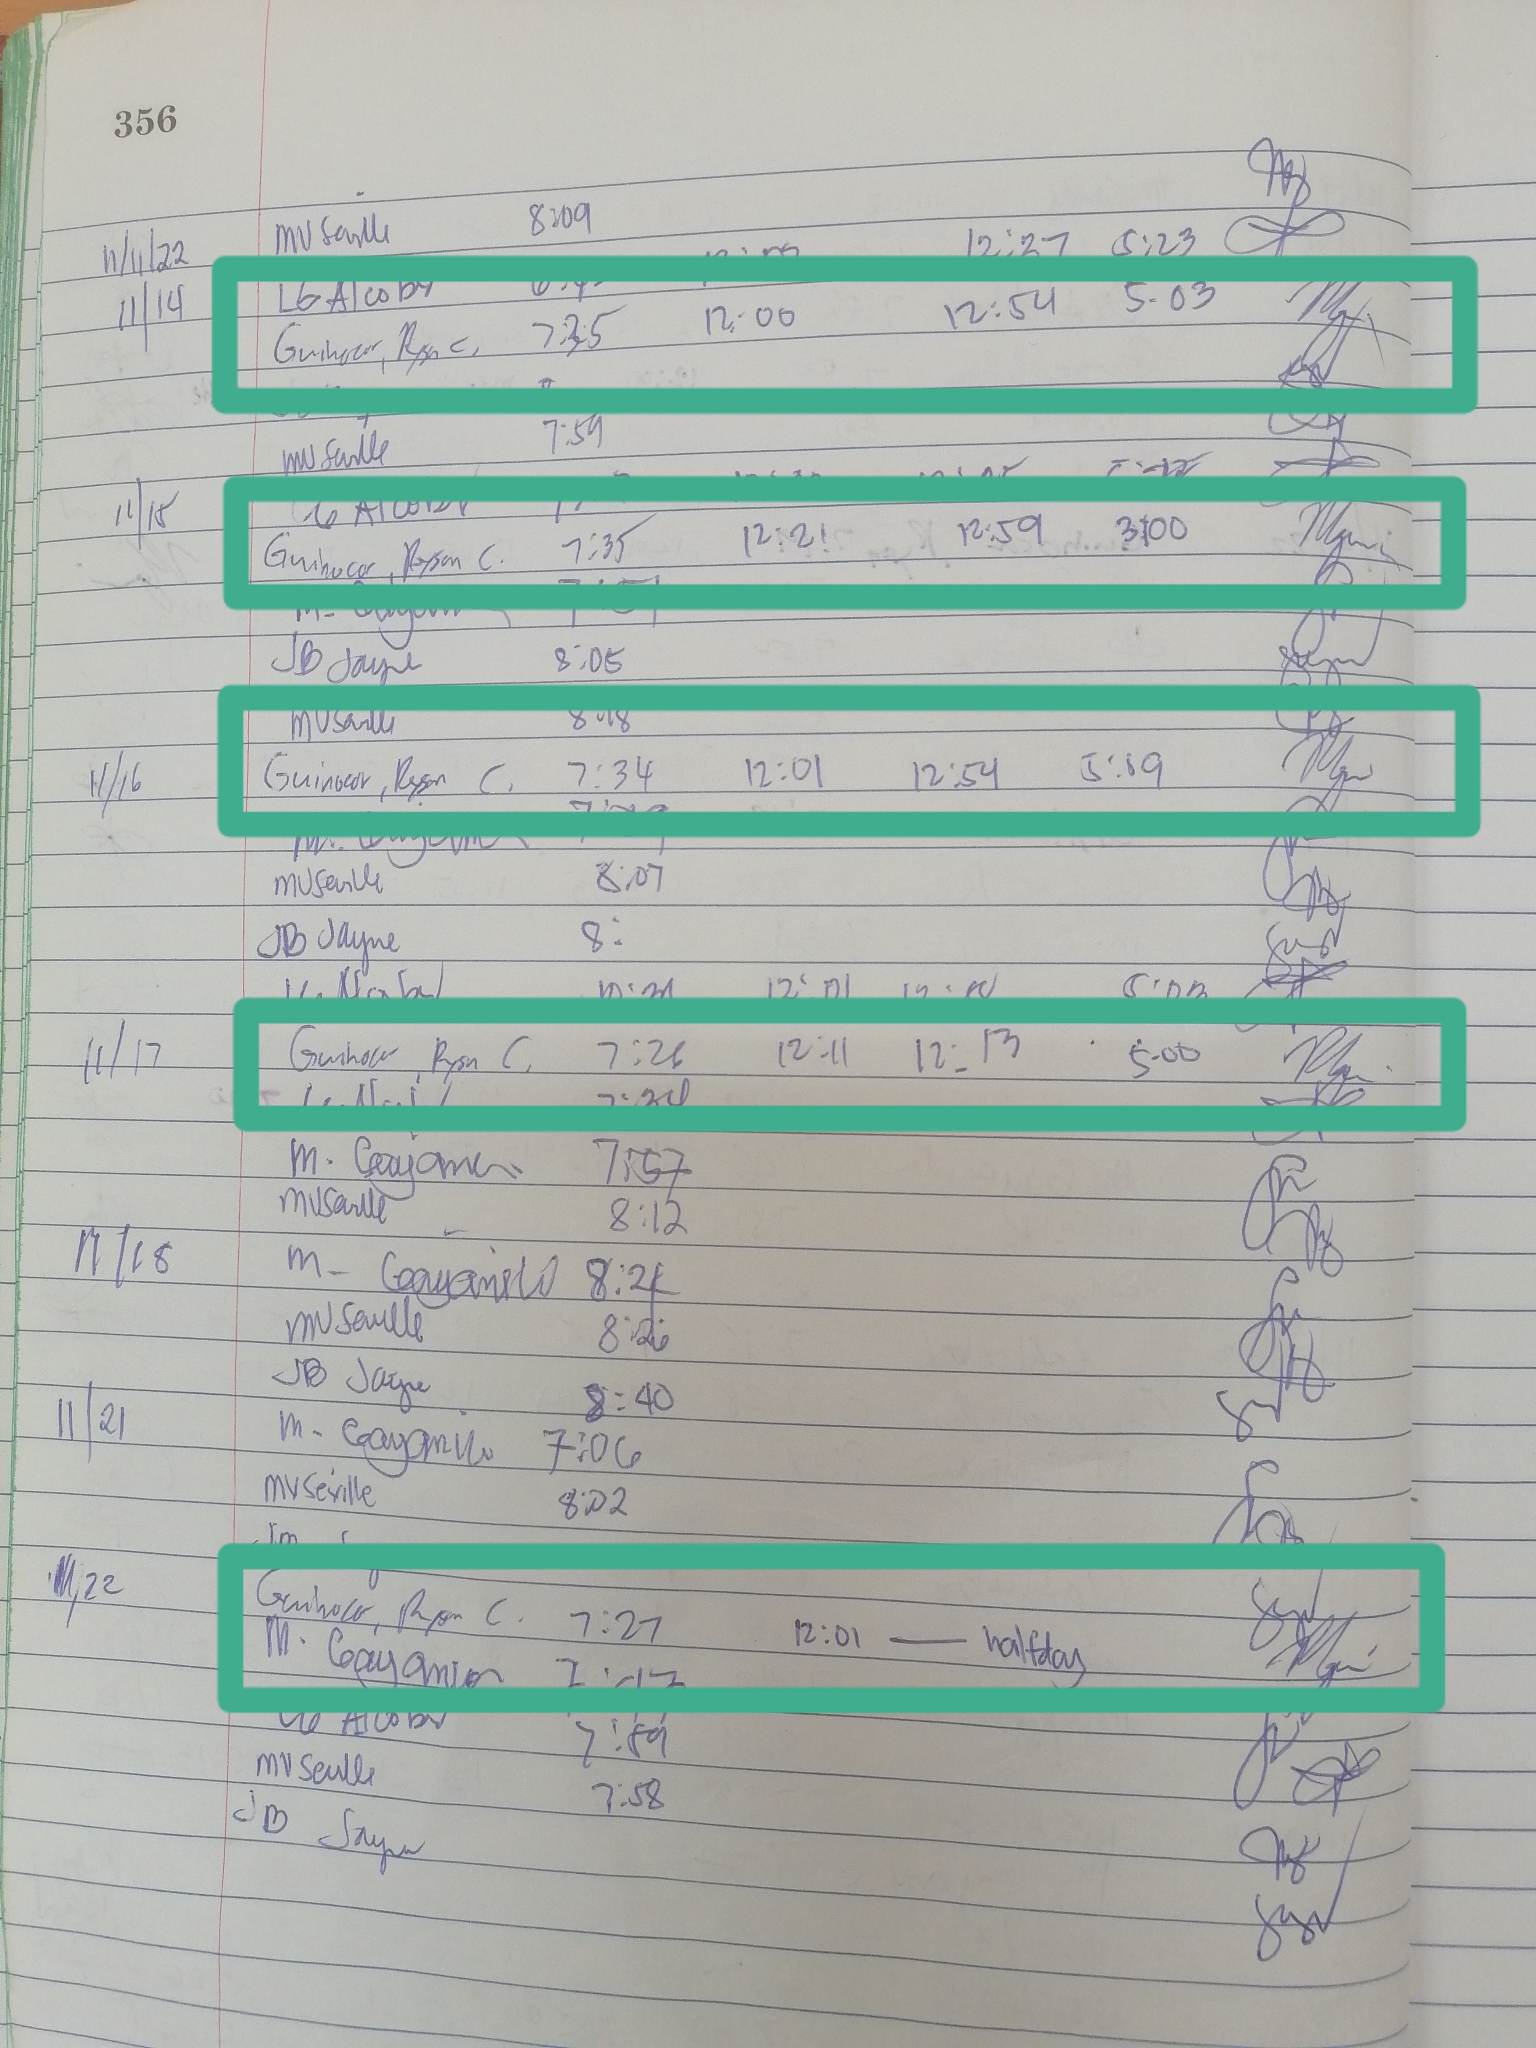 356
11/11/22 MV Seville 8:09
12:27 5:23
11/14 LG Alcober
Guihocor, Ryan C. 7:35 12:00 12:54 5:03
MV Seville 7:59
11/15 LG Alcober
Guihocor, Ryson C. 7:35 12:21 12:59 3:00
JB Jayne 8:05
MV Seville 8:18
11/16 Guihocor, Ryson C. 7:34 12:01 12:54 5:19
M. Gayamo
MV Seville 8:07
JB Jayne 8:
12:01
11/17 Guihocor, Ryson C. 7:26 12:11 12:13 5:00
M. Gayamo 7:57
MV Seville 8:12
11/18 M- Gayamilo
MV Seville 8:26
JB Jayne 8:40
11/21 M- Gayamilo 7:06
MV Seville 8:02
11/22 Guihocor, Ryson C. 7:27 12:01 — halfday
M. Gayamilo
LG Alcober 7:59
MV Seville 7:58
JB Jayne